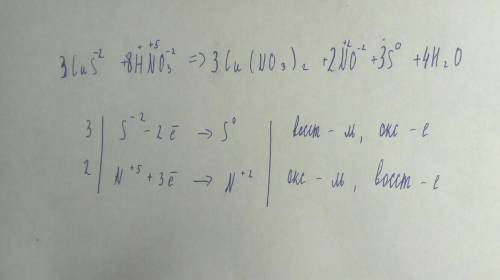 3CuS⁻² + 8H⁺N⁺⁵O₃⁻² => 3Cu(NO₃)₂ + 2N⁺²O⁻² + 3S⁰ + 4H₂O
3 | S⁻² - 2ē → S⁰ | восст - ль, окс - е
2 | N⁺⁵ + 3ē → N⁺² | окс - ль, восст - е